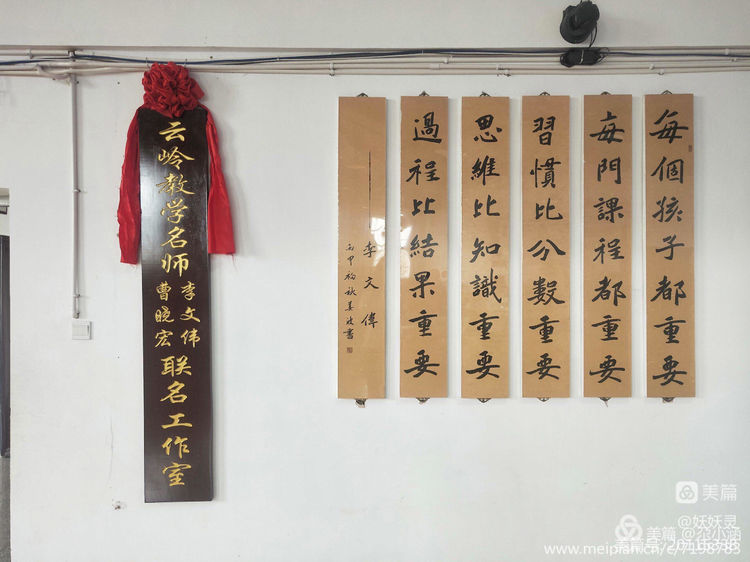 云岭教学名师
李文伟
曹晓宏
联名工作室
每個孩子都重要
每門課程都重要
習慣比分數重要
思維比知識重要
過程比結果重要
——李文偉
丙申初秋姜書
美篇
@妖妖灵
美篇
@尕小涵
www.meipian.cn/c/7198783